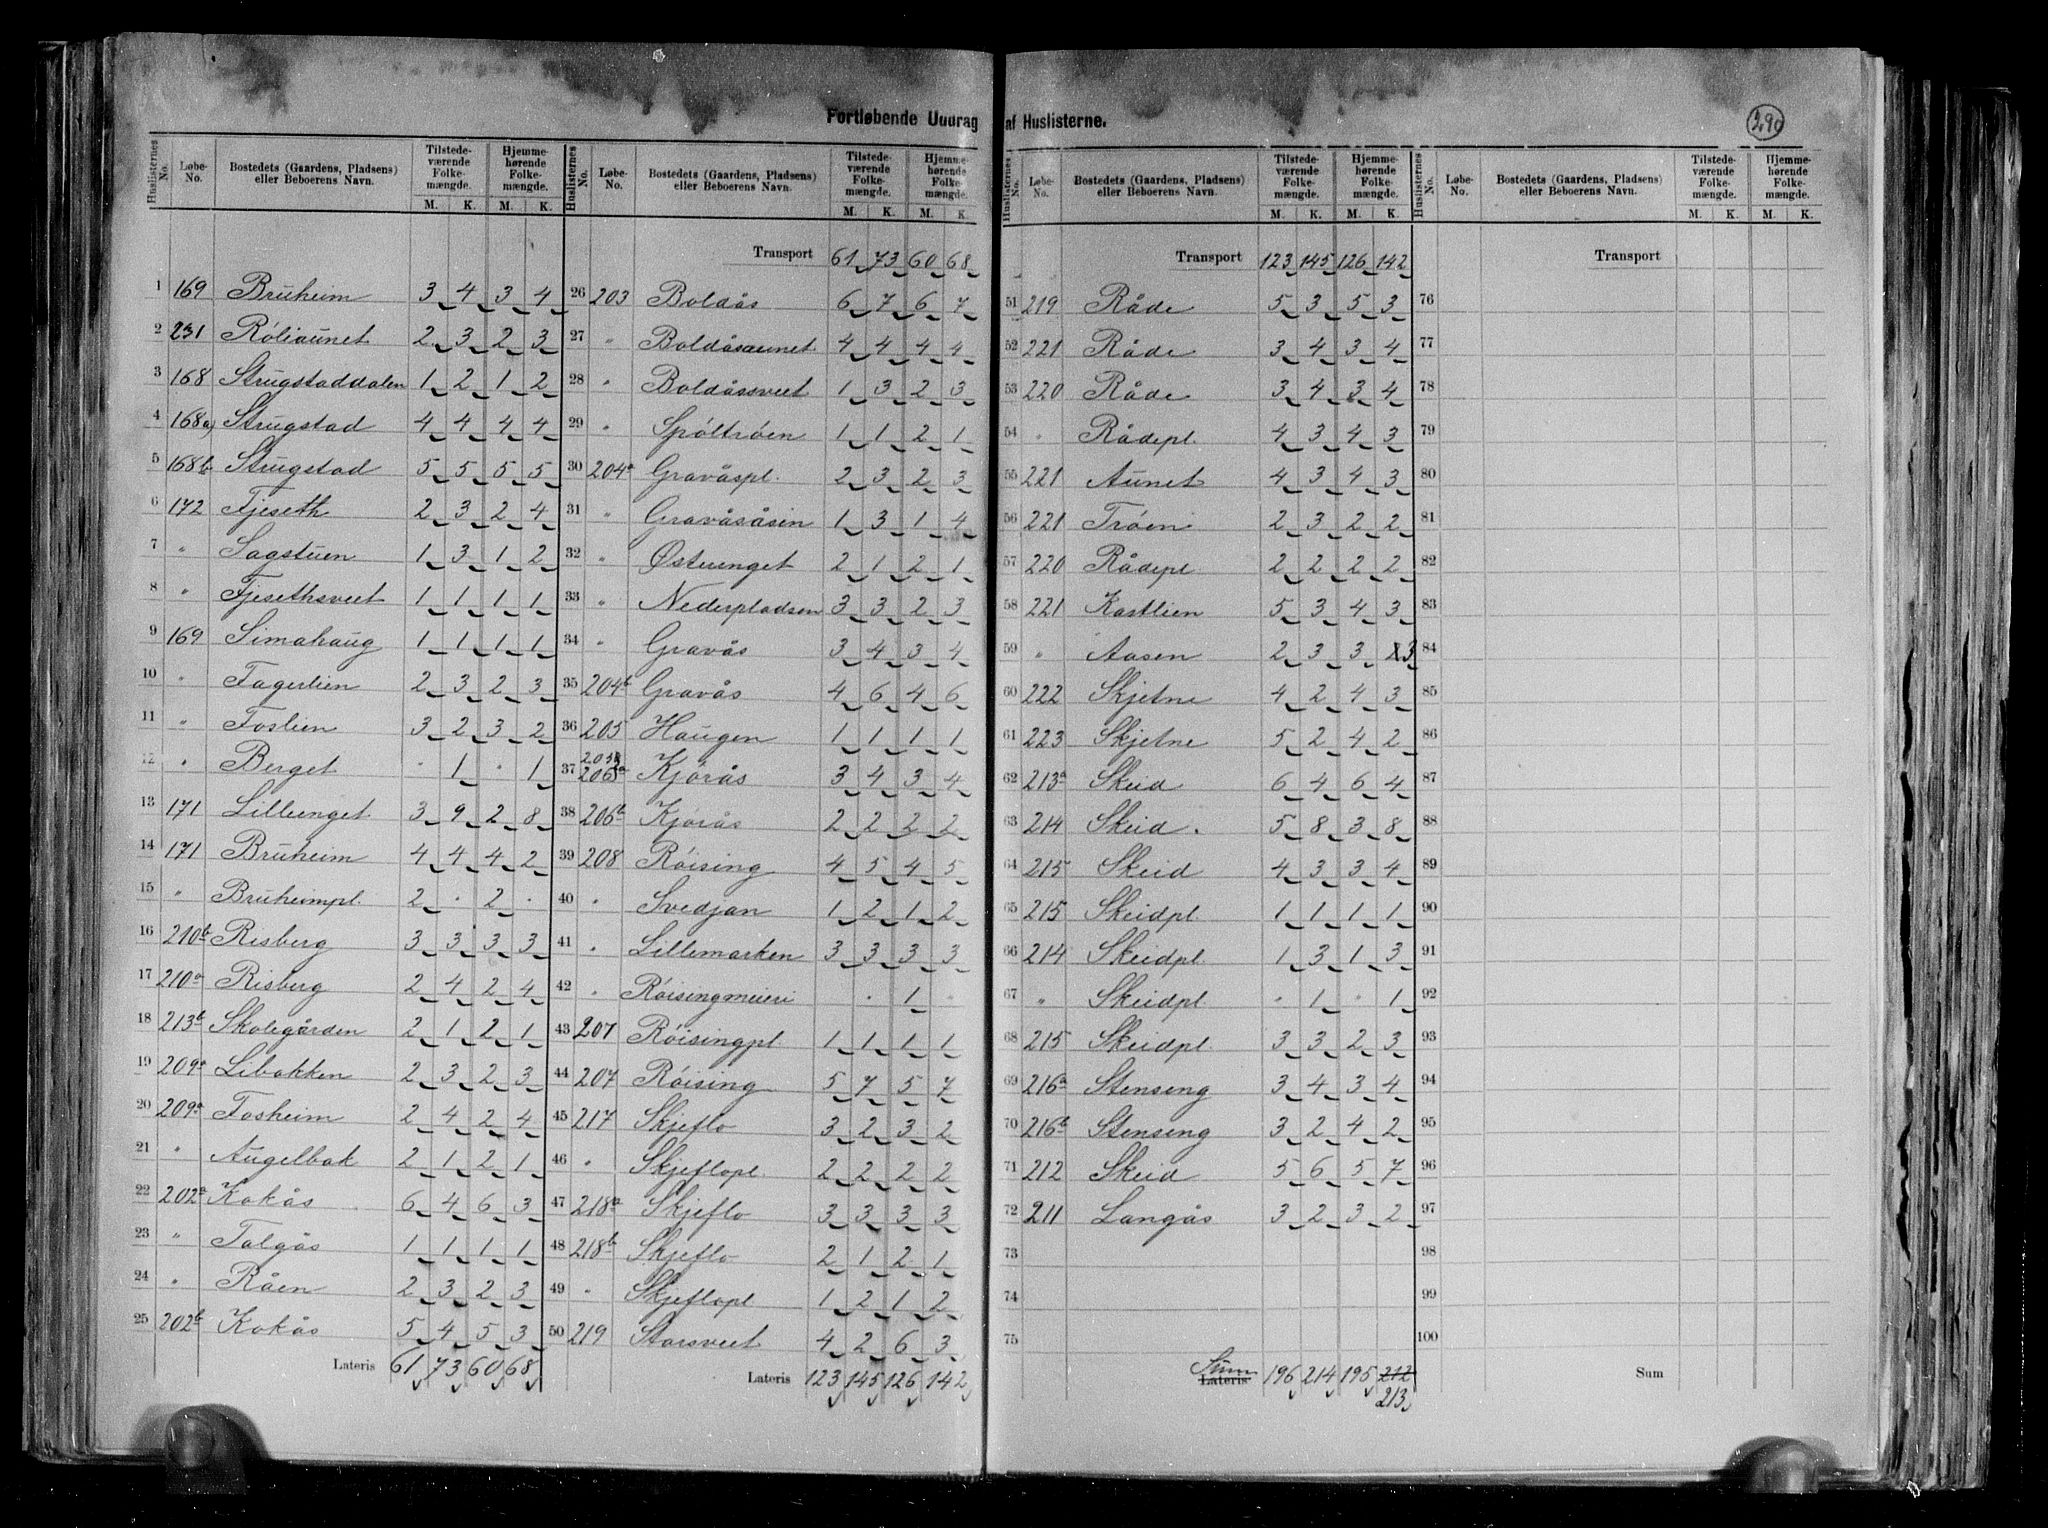 Fortløbende Uddrag af Huslisterne.
290
Huslisternes No. Løbe-No. Bostedets (Gaardens, Pladsens) eller Beboerens Navn. Tilstedeværende Folkemængde. M. K. Hjemmehørende Folkemængde. M. K.
1 169 Bruheim 3 4 3 4
2 231 Röliaunet 2 3 2 3
3 168 Strugstaddalen 1 2 1 2
4 168a) Strugstad 4 4 4 4
5 168b Strugstad 5 5 5 5
6 172 Fjeseth 2 3 2 4
7 " Sagstuen 1 3 1 2
8 " Fjesethsveet 1 1 1 1
9 169 Simahaug 1 1 1 1
10 " Fagerlien 2 3 2 3
11 " Foslien 3 2 3 2
12 " Berget . 1 . 1
13 171 Lilleenget 3 9 2 8
14 171 Bruheim 4 4 4 2
15 " Bruheimpl. 2 . 2 .
16 210b Risberg 3 3 3 3
17 210a Risberg 2 4 2 4
18 213b Skolegården 2 1 2 1
19 209a Libakken 2 3 2 3
20 209a Fosheim 2 4 2 4
21 " Augelbak 2 1 2 1
22 202a Kokås 6 4 6 3
23 " Talgås 1 1 1 1
24 " Råen 2 3 2 3
25 202b Kokås 5 4 5 3
Lateris 61 73 60 68
Huslisternes No. Løbe-No. Bostedets (Gaardens, Pladsens) eller Beboerens Navn. Tilstedeværende Folkemængde. M. K. Hjemmehørende Folkemængde. M. K.
Transport 61 73 60 68
26 203 Boldås 6 7 6 7
27 " Boldåsaunet 4 4 4 4
28 " Boldåssveet 1 3 2 3
29 " Spöltröen 1 1 2 1
30 204a Gravåspl. 2 3 2 3
31 " Gravåsåsen 1 3 1 4
32 " Østerenget 2 1 2 1
33 " Nederpladsen 3 3 2 3
34 " Gravås 3 4 3 4
35 204b Gravås 4 6 4 6
36 205 Haugen 1 1 1 1
37 205b 206a Kjörås 3 4 3 4
38 206b Kjörås 2 2 2 2
39 208 Röising 4 5 4 5
40 " Svedjan 1 2 1 2
41 " Lillemarken 3 3 3 3
42 " Röisingmeieri . 1 "
43 207 Röisingpl 1 1 1 1
44 207 Röising 5 7 5 7
45 217 Skjeflo 3 2 3 2
46 " Skjeflopl. 2 2 2 2
47 218a Skjeflo 3 3 3 3
48 218b Skjeflo 2 1 2 1
49 " Skjeflopl 1 2 1 2
50 219 Storsveet 4 2 6 3
Lateris 123 145 126 142
Huslisternes No. Løbe-No. Bostedets (Gaardens, Pladsens) eller Beboerens Navn. Tilstedeværende Folkemængde. M. K. Hjemmehørende Folkemængde. M. K.
Transport 123 145 126 142
51 219 Råde 5 3 5 3
52 221 Råde 3 4 3 4
53 220 Råde 3 4 3 4
54 " Rådepl. 4 3 4 3
55 221 Aunet 4 3 4 3
56 221 Tröen 2 3 2 2
57 220 Rådepl 2 2 2 2
58 221 Kastlien 5 3 4 3
59 " Aasen 2 3 3 3
60 222 Skjetne 4 2 4 3
61 223 Skjetne 5 2 4 2
62 213a Skeid 6 4 6 4
63 214 Skeid. 5 8 3 8
64 215 Skeid 4 3 3 4
65 215 Skeidpl. 1 1 1 1
66 214 Skeidpl. 1 3 1 3
67 " Skeidpl. " 1 " 1
68 215 Skeidpl. 3 3 2 3
69 216a Stenseng 3 4 3 4
70 216b Stenseng 3 2 4 2
71 212 Skeid 5 6 5 7
72 211 Langås 3 2 3 2
73
74
75
Sum Lateris 196 214 195 212
213
Huslisternes No. Løbe-No. Bostedets (Gaardens, Pladsens) eller Beboerens Navn. Tilstedeværende Folkemængde. M. K. Hjemmehørende Folkemængde. M. K.
Transport
76
77
78
79
80
81
82
83
84
85
86
87
88
89
90
91
92
93
94
95
96
97
98
99
100
Sum